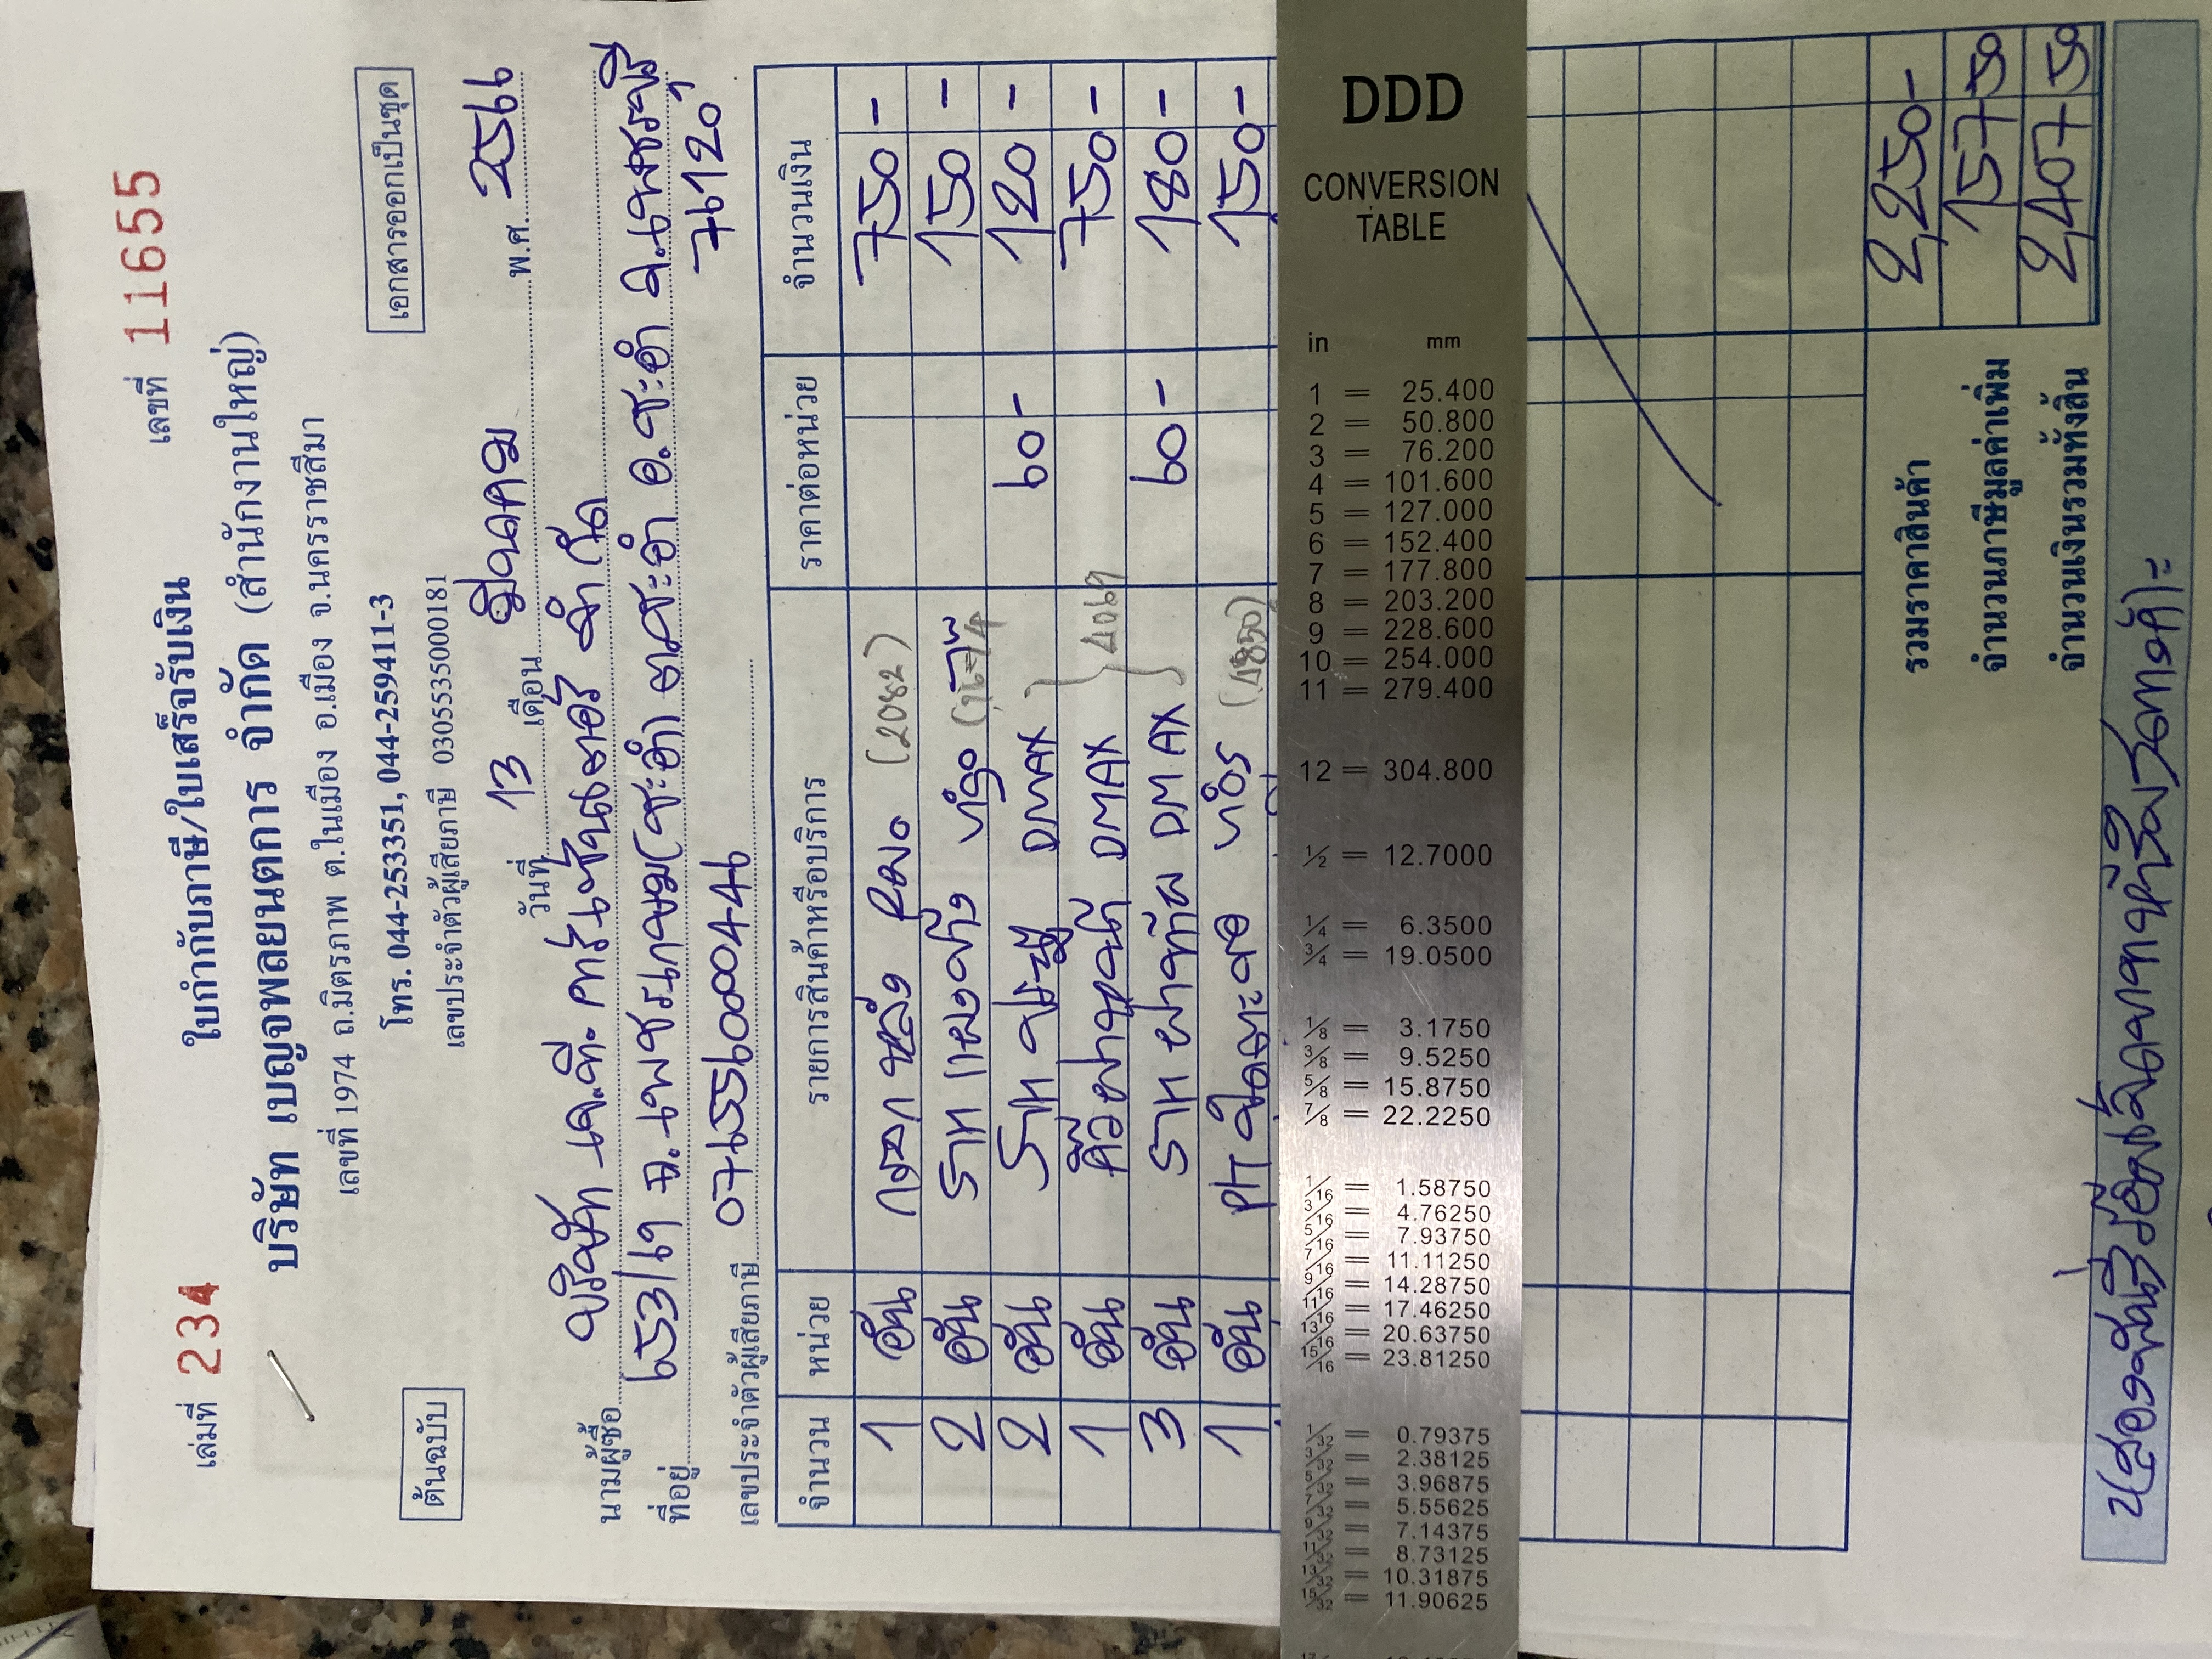 เล่มที่ 234
เลขที่ 11655
ใบกำกับภาษี/ใบเสร็จรับเงิน
บริษัท เบญจพลยนตการ จำกัด (สำนักงานใหญ่)
เลขที่ 1974 ถ.มิตรภาพ ต.ในเมือง อ.เมือง จ.นครราชสีมา
โทร. 044-253351, 044-259411-3
เลขประจำตัวผู้เสียภาษี 0305535000181
ต้นฉบับ
เอกสารออกเป็นชุด
วันที่ 13 เดือน มีนาคม พ.ศ. 2566
นามผู้ซื้อ บริษัท เค.ที. จำกัด
ที่อยู่ 653/69 ถ.เพชรเกษม(ชะอำ) ต.ชะอำ อ.ชะอำ จ.เพชรบุรี
76120
เลขประจำตัวผู้เสียภาษี 0765560000446
จำนวน หน่วย รายการสินค้าหรือบริการ ราคาต่อหน่วย จำนวนเงิน
1 อัน หลัง (2082) 750 -
2 อัน 150 -
2 อัน DMAX 60 - 120 -
1 อัน DMAX 4069 750 -
3 อัน ฝาท้าย DMAX 60 - 180 -
1 อัน (4850) 150 -
รวมราคาสินค้า 2,250 -
จำนวนภาษีมูลค่าเพิ่ม 157 50
จำนวนเงินรวมทั้งสิ้น 2,407 50
DDD
CONVERSION
TABLE
in mm
1 = 25.400
2 = 50.800
3 = 76.200
4 = 101.600
5 = 127.000
6 = 152.400
7 = 177.800
8 = 203.200
9 = 228.600
10 = 254.000
11 = 279.400
12 = 304.800
1/2 = 12.7000
1/4 = 6.3500
3/4 = 19.0500
1/8 = 3.1750
3/8 = 9.5250
5/8 = 15.8750
7/8 = 22.2250
1/16 = 1.58750
3/16 = 4.76250
5/16 = 7.93750
7/16 = 11.11250
9/16 = 14.28750
11/16 = 17.46250
13/16 = 20.63750
15/16 = 23.81250
1/32 = 0.79375
3/32 = 2.38125
5/32 = 3.96875
7/32 = 5.55625
9/32 = 7.14375
11/32 = 8.73125
13/32 = 10.31875
15/32 = 11.90625
(สองพันสี่ร้อยเจ็ดบาทห้าสิบสตางค์)